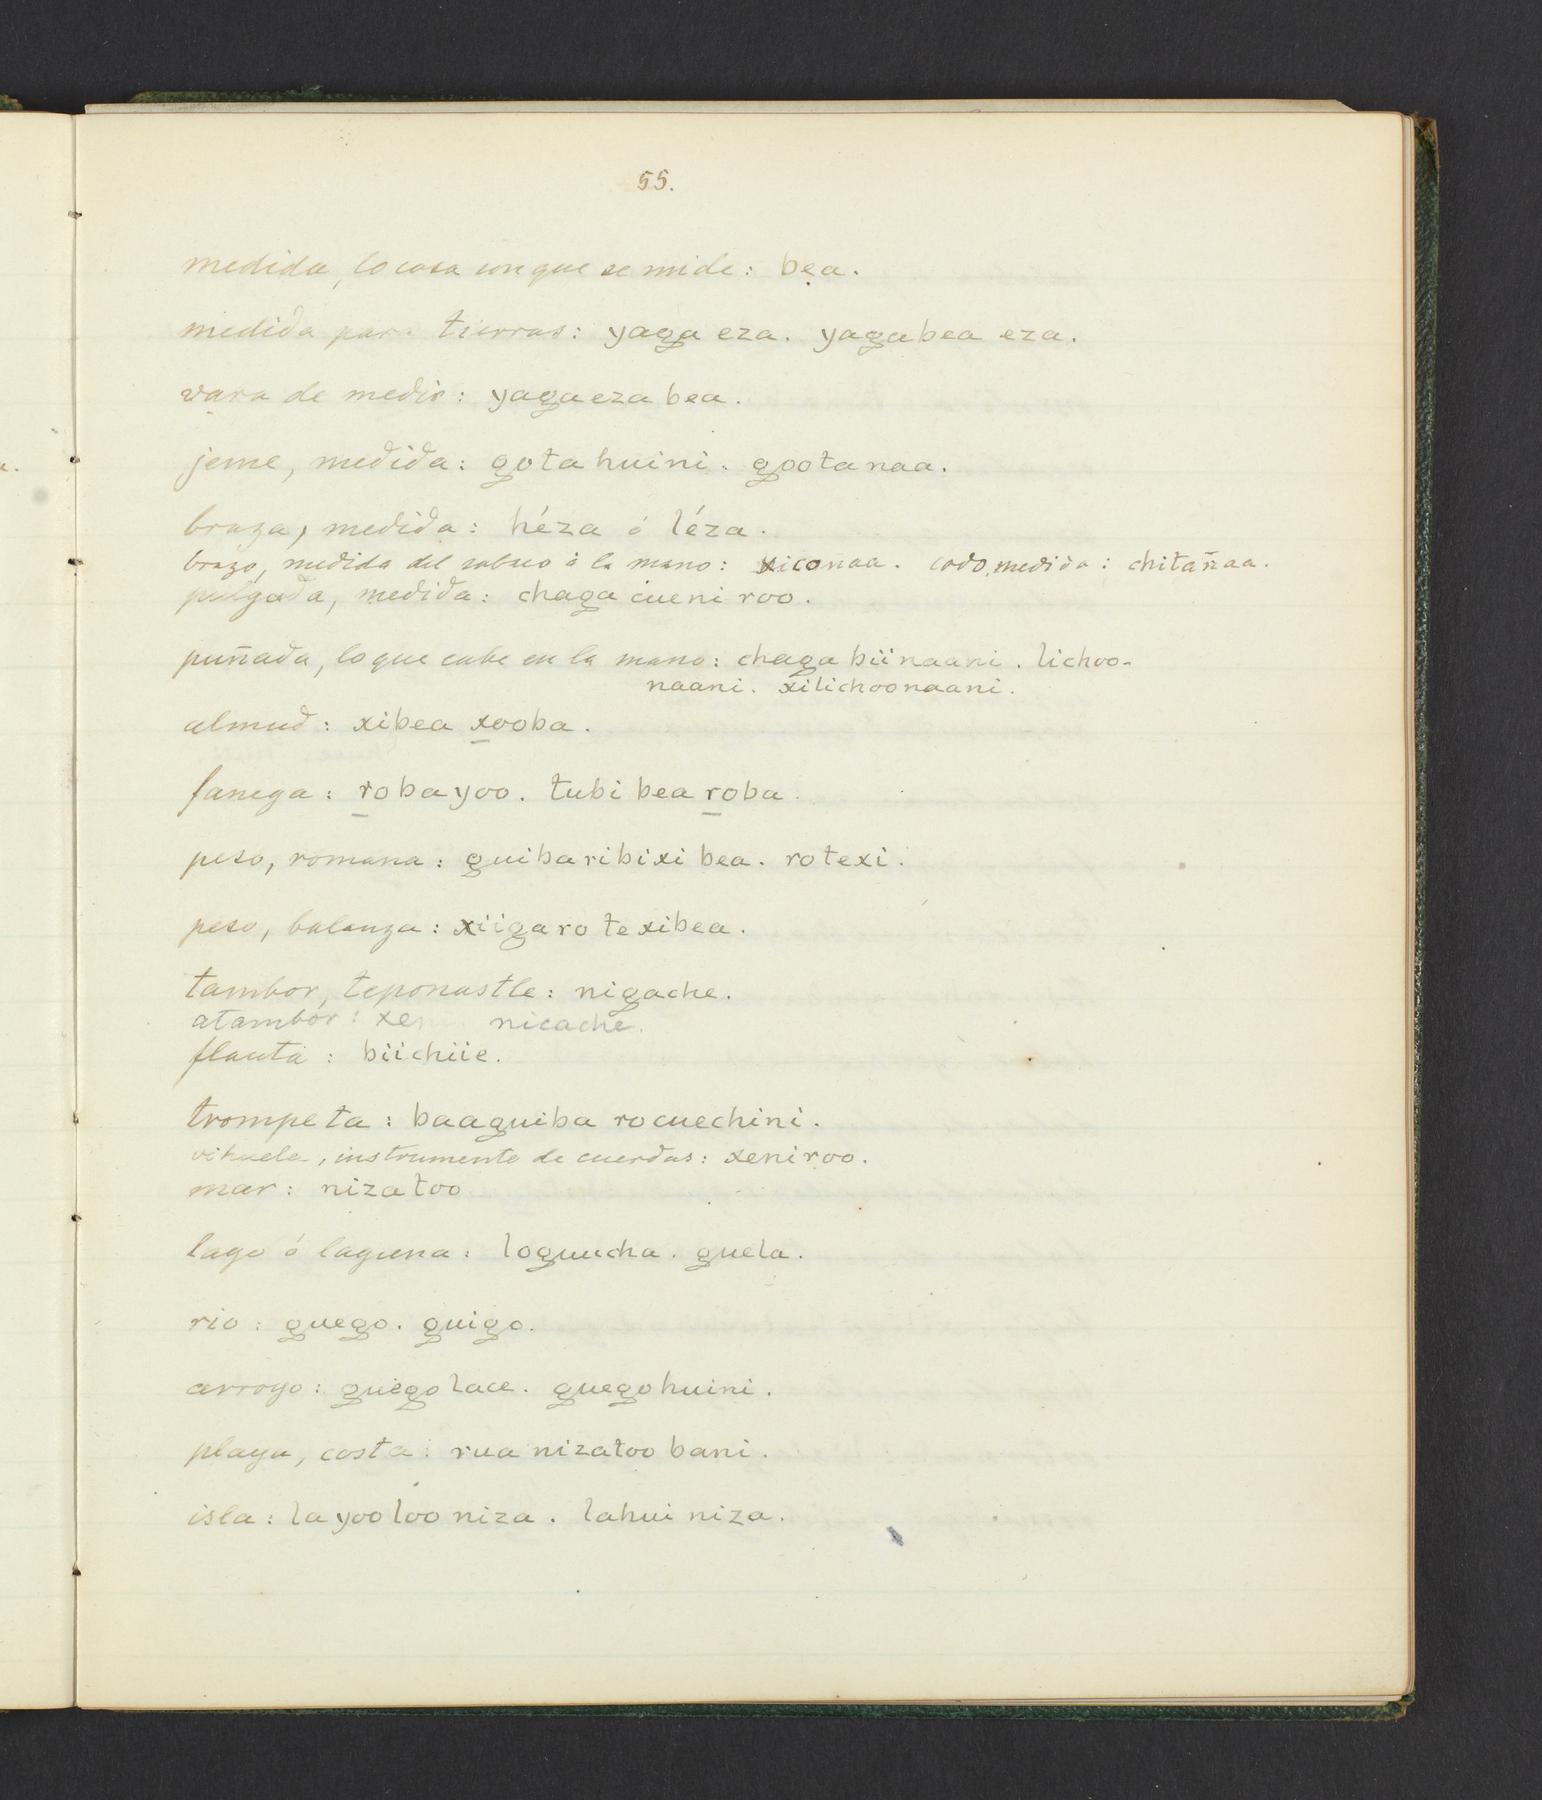 55.
medida, lo cosa con que se mide: bẹa.
medida para tierras: yaga eza. yagabea eza.
vara de medir: yagaeza bea.
jeme, medida: gota huini. goota naa.
braza, medida: héza ó léza.
brazo, medida del sobaco á la mano: xiconaa. codo, medida: chitañaa.
pulgada, medida: chaga cueni roo.
puñada, lo que cabe en la mano: chaga biinaani. lichoo-
naani. xilichoonaani.
almud: xibea xooba.
fanega: robayoo. tubi bea roba.
peso, romana: guibaribixi bea. rotexi.
peso, balanza: xiigaro texibea.
tambor, teponastle: nigache.
atambor: nicache.
flauta: biichiie.
trompeta: baaguiba rocuechini.
vihuela, instrumento de cuerdas: xeniroo.
mar: nizatoo
lago ó laguna: loguucha. guela.
rio: guego. guigo.
arroyo: guego lace. guegohuini.
playa, costa: rua nizatoo bani.
isla: la yoo loo niza. lahui niza.